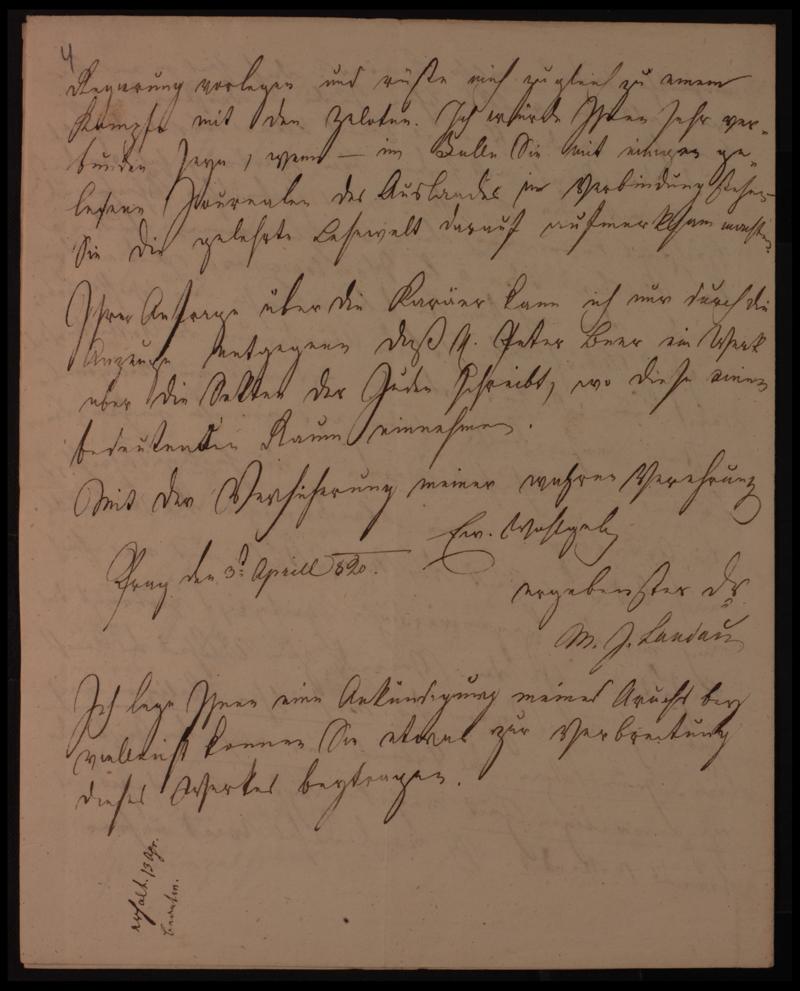 4
Regierung vorlegen und rüste mich zugleich zu einem
Kampfe mit den Zeloten. Ich würde Ihnen sehr ver-
bunden seyn, wenn – im Falle Sie mit einigen ge-
lesenen Journalen des Auslandes in Verbindung stehen –
Sie die gelehrte Lesewelt darauf aufmerksam machten.
Ihrer Anfrage über die Karäer kann ich nur durch die
Anzeige entgegnen daß H. Peter Beer ein Werk
uber die Sekten der Juden schreibt, wo diese einen
bedeutenden Raum einnehmen.
Mit der Versicherung meiner wahren Verehrung
Ew. Wohlgeb
Prag den 3t Aprill 820.
ergebenster Dr.
M. J. Landau
Ich lege Ihnen eine Ankündigung meines Aruchs bey
vielleicht können Sie etwas zur Verbreitung
dieses Werkes beytragen.
erhalt. 13 Apr.